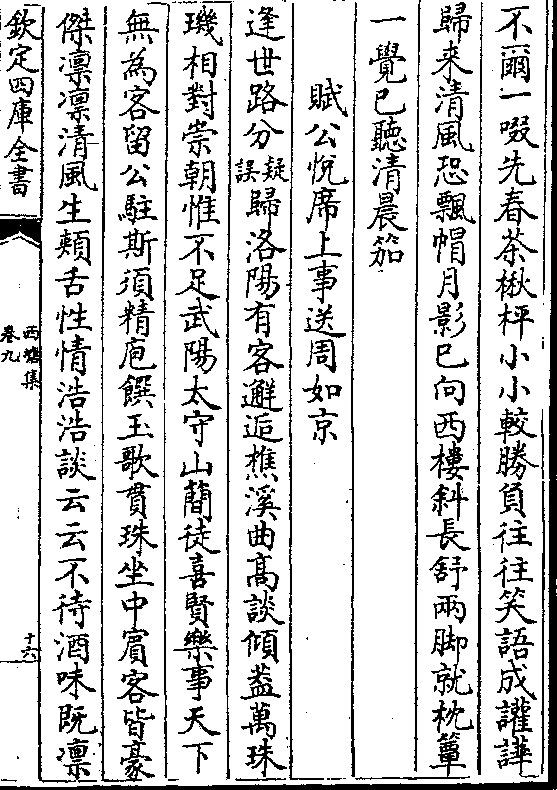 不爾一啜先春茶楸枰小小較勝負往往笑語成讙譁
歸来清風恐飄帽月影已向西樓斜長舒兩脚就枕簟
一覺已聽清晨笳
賦公悦席上事送周如京
逢世路分疑誤歸洛陽有客邂逅樵溪曲髙談傾葢萬珠
璣相對崇朝惟不足武陽太守山簡徒喜賢樂事天下
無為客留公駐斯須精庖饌玉歌貫珠坐中賔客皆豪
傑凛凛清風生頰舌性情浩浩談云云不待酒味既凛
欽定四庫全書
西塘集
卷九
十六